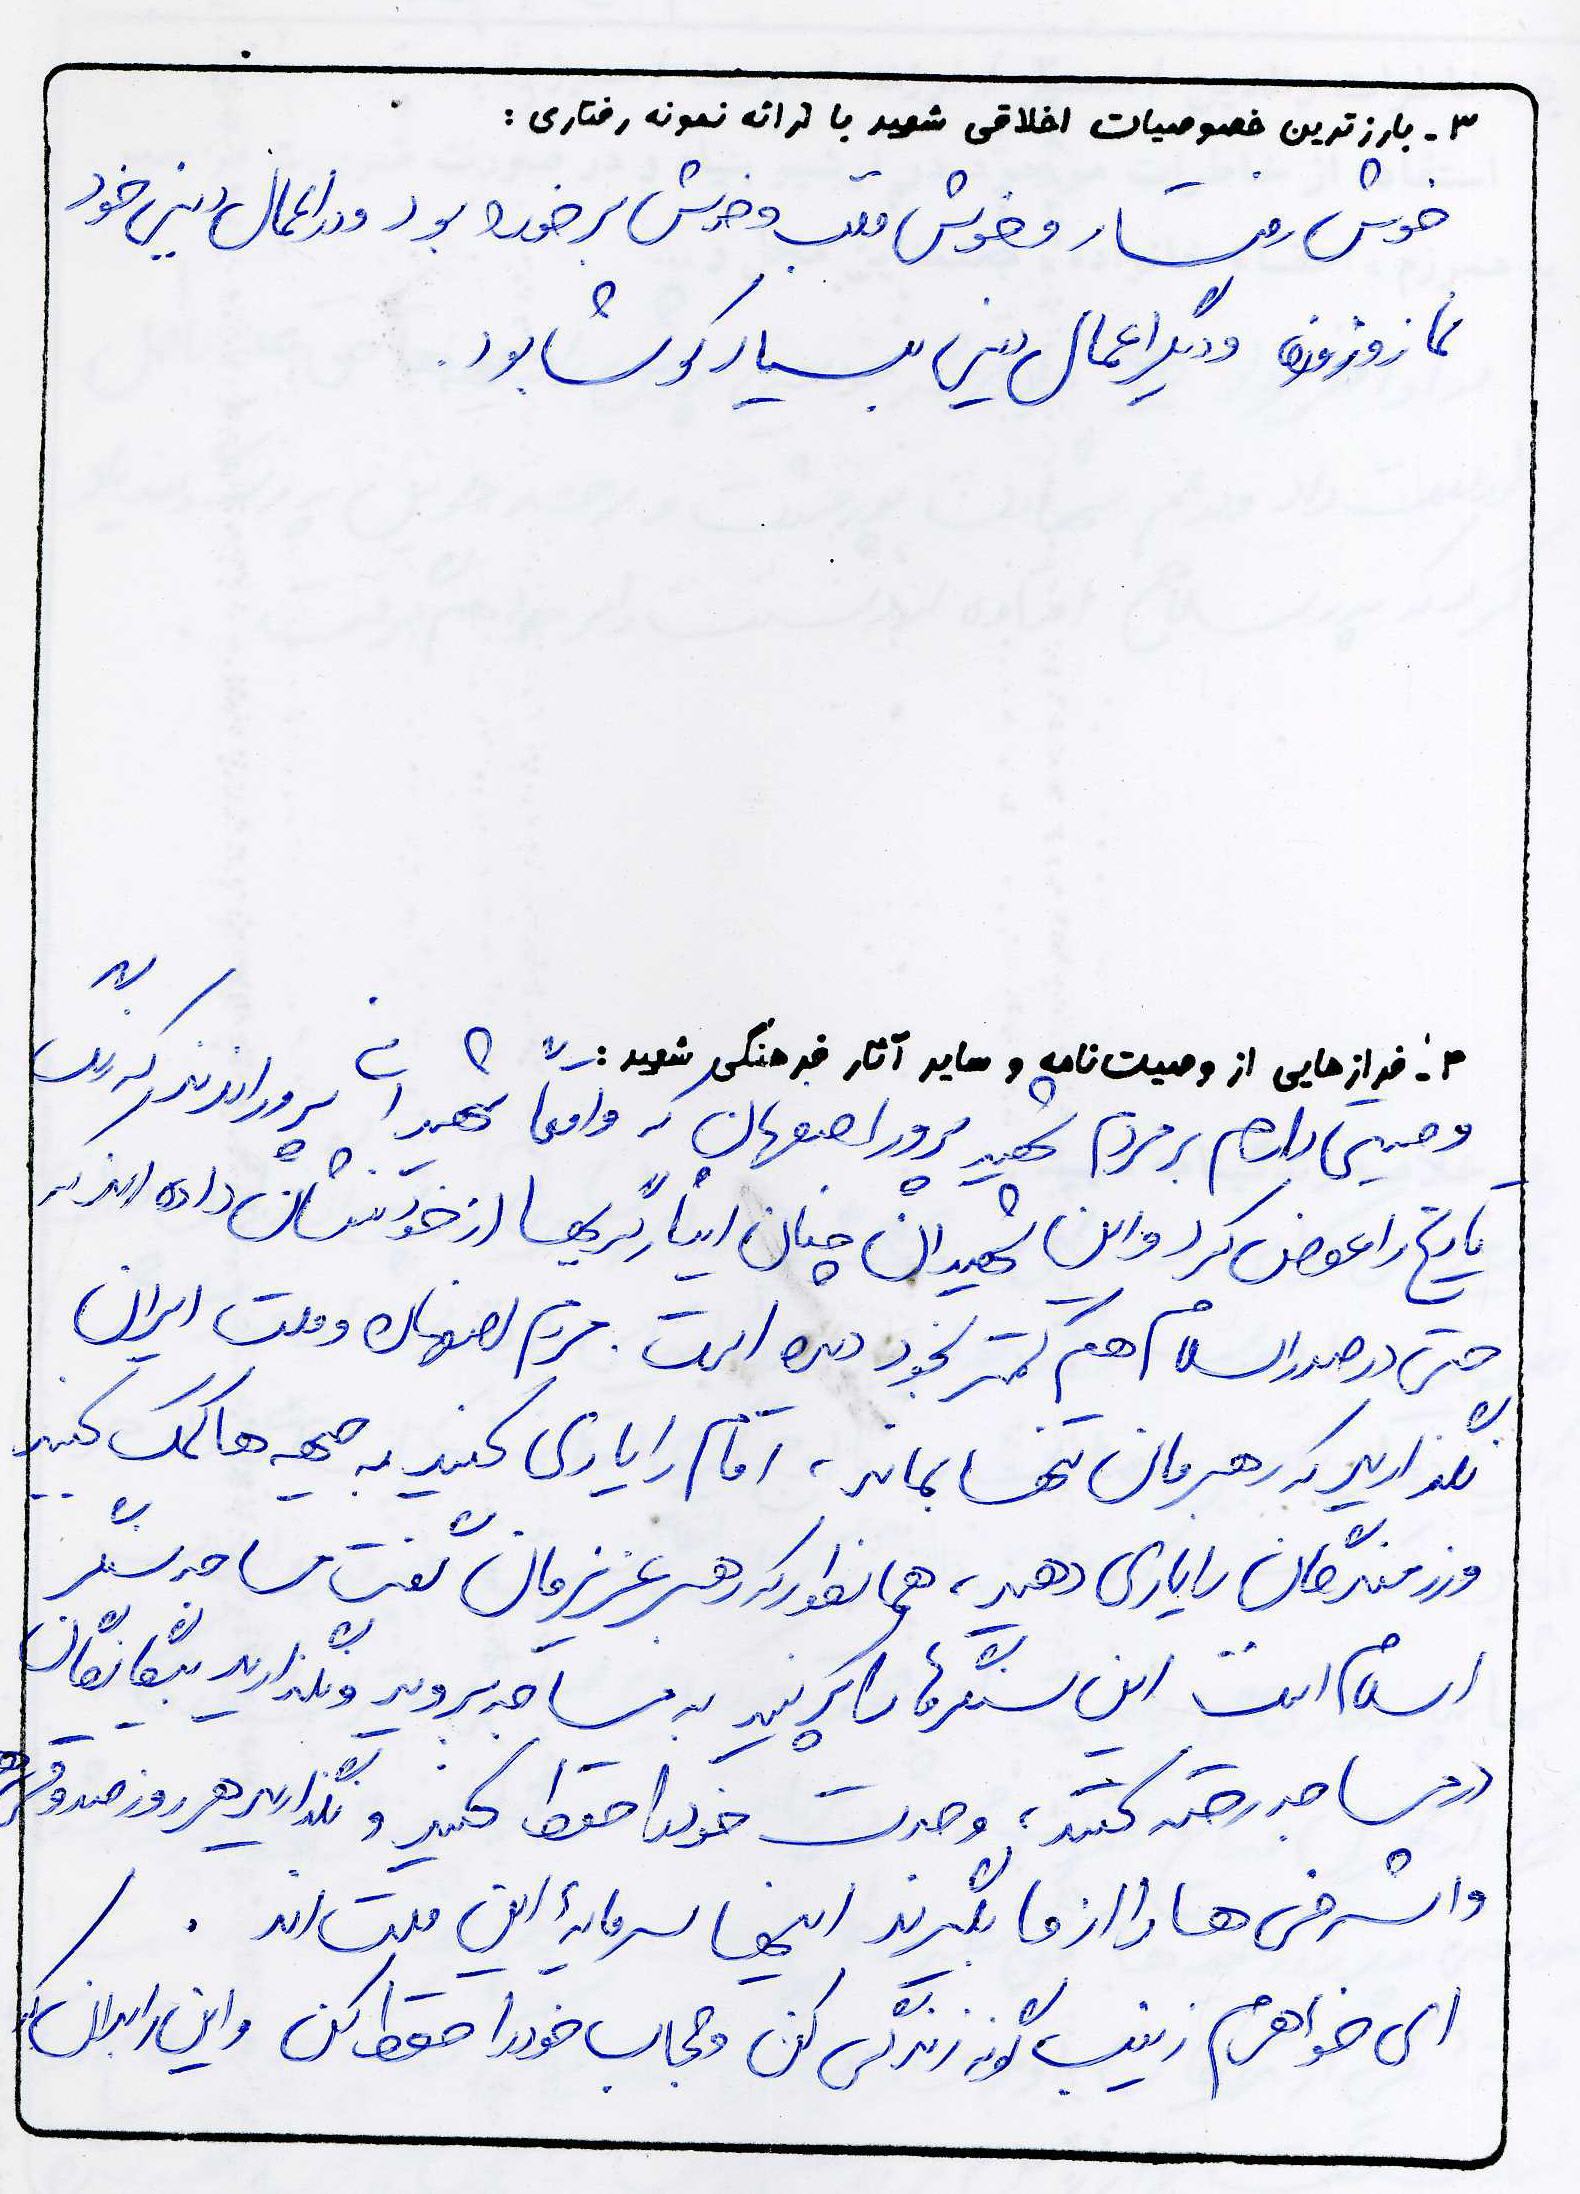 ۳ـ بارزترین خصوصیات اخلاقی شهید با ارائه نمونه رفتاری :
خوش رفتار و خوش قلب و خوش برخورد بود و در اعمال دینی خود
نماز و روزه و دیگر اعمال دینی بسیار کوشا بود.
۴ـ فرازهایی از وصیت‌نامه و سایر آثار فرهنگی شهید :
وصیتی دارم بر مردم شهید پرور اصفهان که واقعا شهیدانی پروراندند که
تاریخ را عوض کرد و این شهیدان چنان ایثارگریها از خود نشان داده اند که
حتی در صدر اسلام هم کمتر بخود دیده است . مردم اصفهان و ملت ایران
نگذارید که رهبرمان تنها بماند ، امام را یاری کنید به جبهه ها کمک کنید
و رزمندگان را یاری دهید ، همانطور که رهبر عزیزمان گفت مساجد سنگر
اسلام است این سنگرها را پر کنید به مساجد بروید و نگذارید بیگانگان
در مساجد رخنه کنند ، وحدت خود را حفظ کنید و نگذارید هر روز صدوقی ها
و اشرفی ها را از ما بگیرند اینها سرمایهٔ این ملت اند .
ای خواهرم زینب گونه زندگی کن و حجاب خود را حفظ کن و این را بدان که